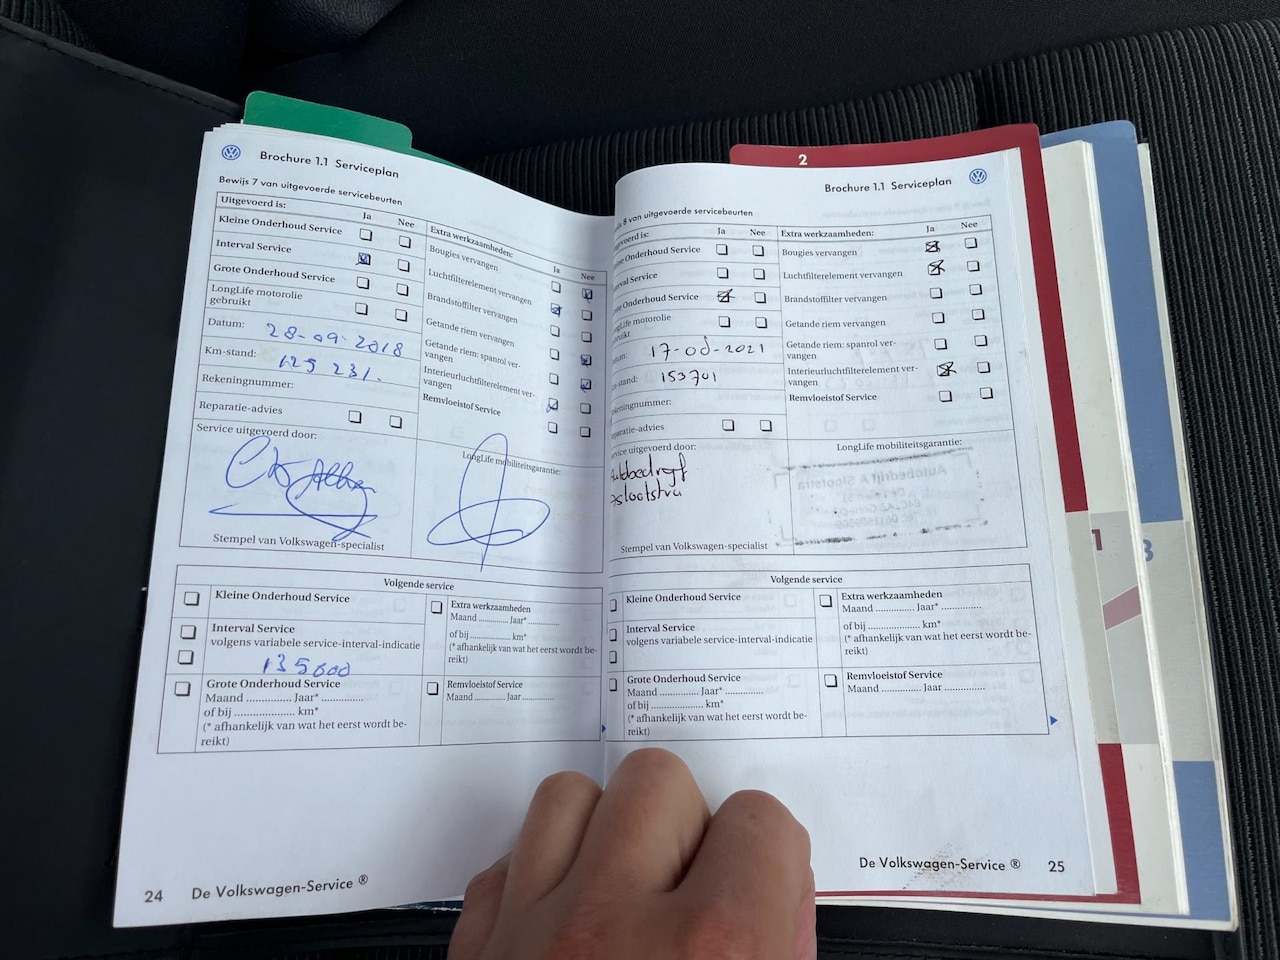 Brochure 1.1 Serviceplan
Bewijs 7 van uitgevoerde servicebeurten
Uitgevoerd is:
Ja
Nee
Kleine Onderhoud Service
Interval Service
Grote Onderhoud Service
LongLife motorolie
gebruikt
Datum: 28-09-2018
Km-stand: 125 231.
Rekeningnummer:
Reparatie-advies
Extra werkzaamheden:
Ja
Nee
Bougies vervangen
Luchtfilterelement vervangen
Brandstoffilter vervangen
Getande riem vervangen
Getande riem: spanrol ver-
vangen
Interieurluchtfilterelement ver-
vangen
Remvloeistof Service
Service uitgevoerd door:
LongLife mobiliteitsgarantie:
Stempel van Volkswagen-specialist
Volgende service
Kleine Onderhoud Service
Interval Service
volgens variabele service-interval-indicatie
135000
Grote Onderhoud Service
Maand .............. Jaar* ..............
of bij ................... km*
(* afhankelijk van wat het eerst wordt be-
reikt)
Extra werkzaamheden
Maand ............ Jaar* ............
of bij ............... km*
(* afhankelijk van wat het eerst wordt be-
reikt)
Remvloeistof Service
Maand ............ Jaar ............
24 De Volkswagen-Service ®
2
Brochure 1.1 Serviceplan
8 van uitgevoerde servicebeurten
Ja
Nee
Onderhoud Service
Service
Onderhoud Service
motorolie
17-08-2021
153701
Extra werkzaamheden:
Ja
Nee
Bougies vervangen
Luchtfilterelement vervangen
Brandstoffilter vervangen
Getande riem vervangen
Getande riem: spanrol ver-
vangen
Interieurluchtfilterelement ver-
vangen
Remvloeistof Service
uitgevoerd door:
Autobedrijf
A slootstra
LongLife mobiliteitsgarantie:
Autobedrijf A Slootstra
Stempel van Volkswagen-specialist
Volgende service
Kleine Onderhoud Service
Interval Service
volgens variabele service-interval-indicatie
Grote Onderhoud Service
Maand .............. Jaar* ..............
of bij ................... km*
(* afhankelijk van wat het eerst wordt be-
reikt)
Extra werkzaamheden
Maand .............. Jaar* ..............
of bij ................... km*
(* afhankelijk van wat het eerst wordt be-
reikt)
Remvloeistof Service
Maand .............. Jaar ..............
De Volkswagen-Service ® 25
1
3